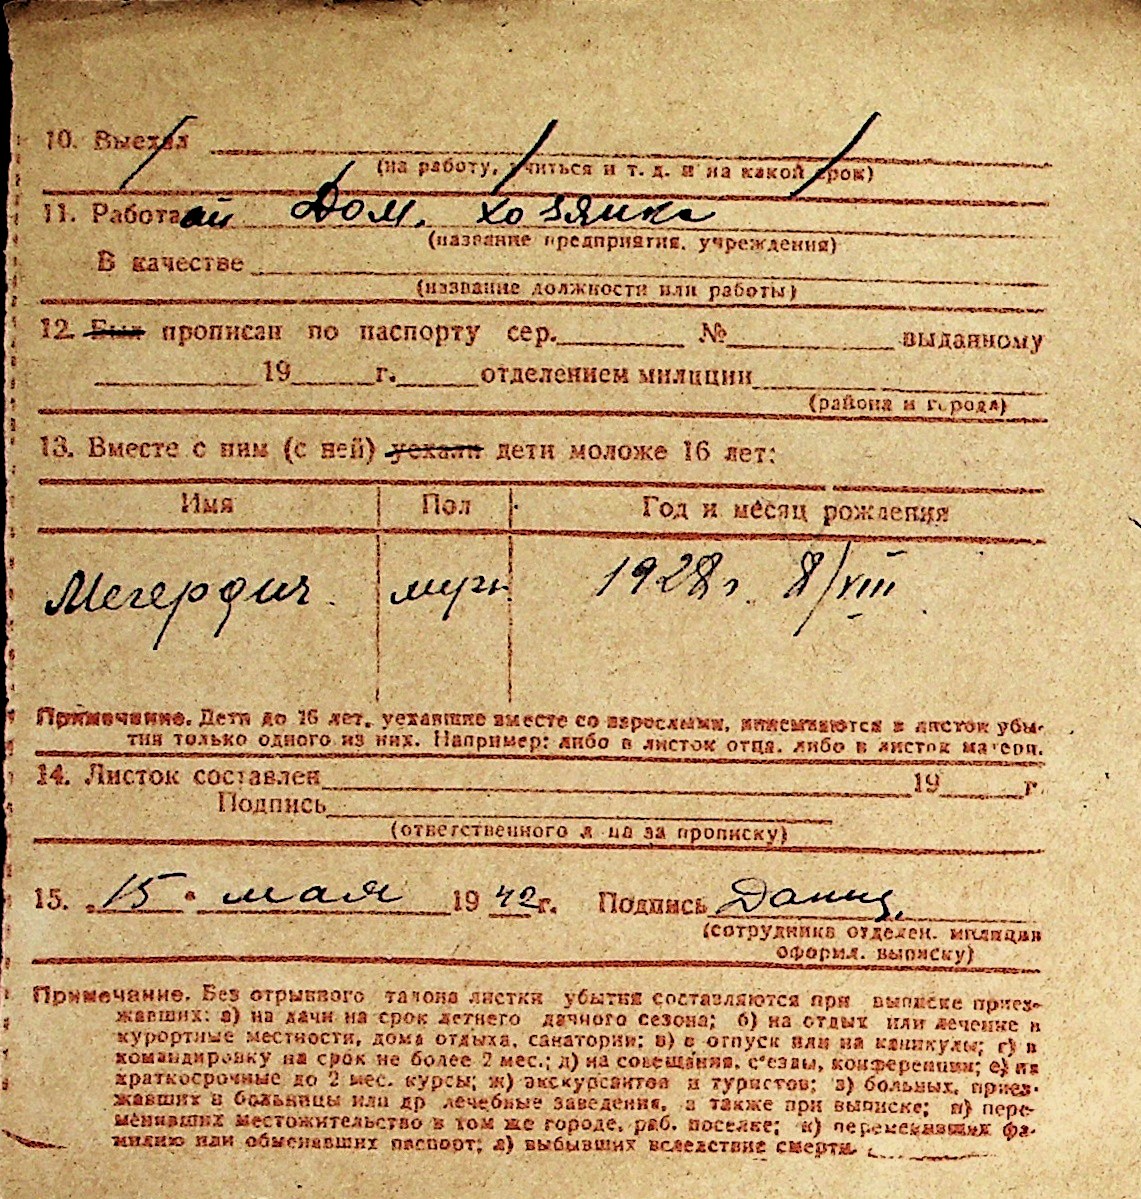 10. Выехал
(на работу, учиться и т. д. и на какой срок)
11. Работает Дом. хозяйка
(название предприятия, учреждения)
В качестве
(название должности или работы)
12. Был прописан по паспорту сер. № выданному
19 г. отделением милиции
(района и города)
13. Вместе с ним (с ней) уехали дети моложе 16 лет:
Имя Пол Год и месяц рождения
Мегердич муж. 1928 г. 8/VIII
Примечание. Дети до 16 лет, уехавшие вместе со взрослыми, вписываются в листок убы-
тия только одного из них. Например: либо в листок отца, либо в листок матери.
14. Листок составлен 19 г.
Подпись
(ответственного лица за прописку)
15. „15“ мая 1942 г. Подпись
(сотрудника отделен. милиции
оформл. выписку)
Примечание. Без отрывного талона листки убытия составляются при выписке приез-
жавших: а) на дачи на срок летнего дачного сезона; б) на отдых или лечение в
курортные местности, дома отдыха, санатории; в) в отпуск или на каникулы; г) в
командировку на срок не более 2 мес.; д) на совещания, с'езды, конференции; е) на
краткосрочные до 2 мес. курсы; ж) экскурсантов и туристов; з) больных, приез-
жавших в больницы или др лечебные заведения, а также при выписке; и) пере-
менивших местожительство в том же городе, раб. поселке; к) переменивших фа-
милию или обменявших паспорт; л) выбывших вследствие смерти.